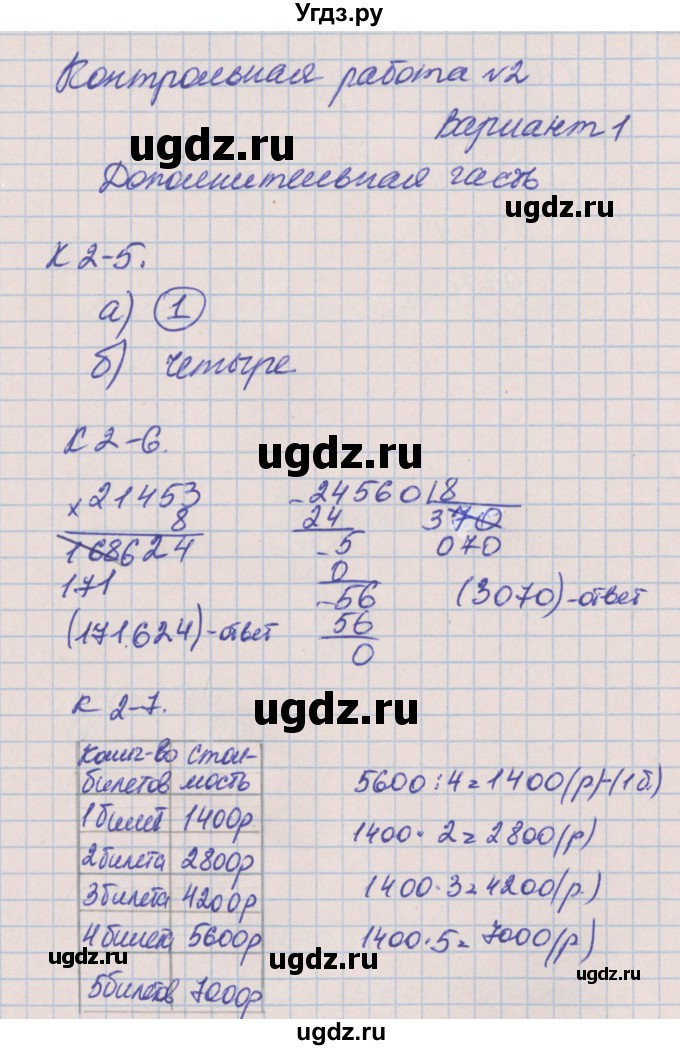 Угдз.ру
Контрольная работа №2
Вариант 1
ugdz.ru
Дополнительная часть
ugdz.ru
К 2-5.
а) 1
б) четыре
К 2-6.
ugdz.ru
× 21453
8
168624
171
(171624) - ответ
- 24560 | 8
24 370
- 5 070
0
- 56
56
0
(3070) - ответ
ugdz.ru
К 2-7.
Колич-во стои-
билетов мость
1 билет 1400р
2 билета 2800р
3 билета 4200р
4 билета 5600р
5 билетов 7000р
5600 : 4 = 1400 (р) - (1 б.)
1400 · 2 = 2800 (р)
1400 · 3 = 4200 (р.)
1400 · 5 = 7000 (р)
ugdz.ru
ugdz.ru
ugdz.ru